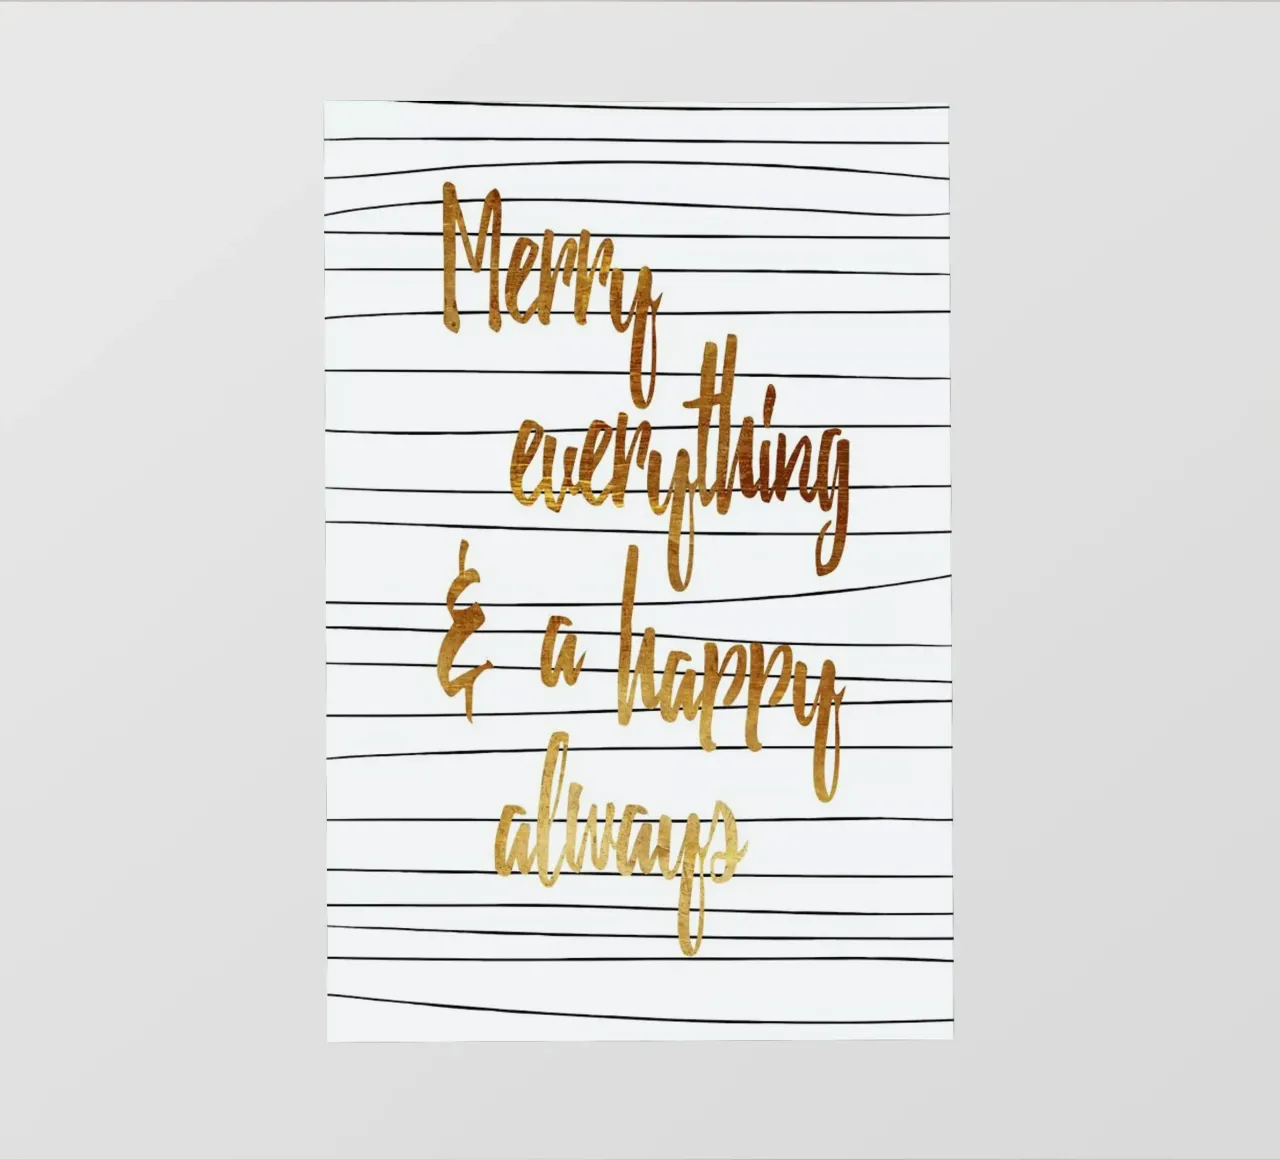 Merry
everything
& a happy
always